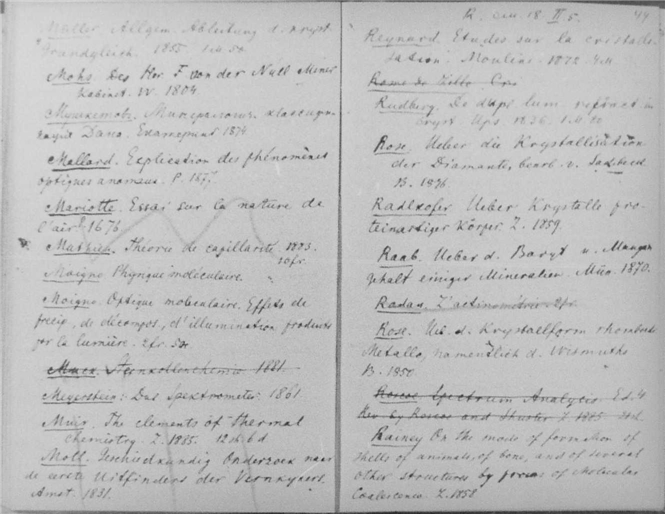 Müller Allgem. Ableitung d. kryst.
Grundgleich. 1855.
Mohs. Des Her. F. von der Null Miner.
Kabinet. W. 1804
Dana. Екатеринб. 1874
Mallard. Explication des phénomènes
optiques anomaux. P. 1877.
Mariotte. Essai sur la nature de
l'air. 1676.
Mathieu. Théorie de capillarité 1883.
10fr.
Moigno Physique moléculaire.
Moigno. Optique moléculaire. Effets de
précip, de décompos, d'illumination produits
par la lumière. 2fr. 50
1881.
Meyerstein: Das Spektrometer. 1861
Muir. The elements of thermal
chemistry. L. 1885. 12sh. 6d
Moll. Geschiedkundig Onderzoek naar
de eerste Uitfinders der Vernkykers.
Amst. 1831.
R. 18 II 5. 44
Reynard. Etudes sur la cristalli-
sation. Moulins. 1872.
Romé de
Rudberg. De
cryst Ups. 1836.
Rose. Ueber die Krystallisation
der Diamante, bearb. v. Sadebeck
B. 1876.
Radlkofer Ueber Krystalle pro-
teinartiger Körper. L. 1859.
Raab. Ueber d. Baryt u. Mangan
gehalt einiger Mineralien. Mün. 1870.
Radau. L'actinométrie. 2fr.
Rose. Ueb. d. Krystallform rhomboëd.
Metalle, namentlich d. Wismuths
B. 1850.
Roscoe. Spectrum Analysis. Ed. 4
Rev. by Roscoe and Shuster. L. 1885.
Rainey On the mode of formation of
shells of animals, of bone, and of several
other structures by process of Molecular
Coalescence. L. 1858.